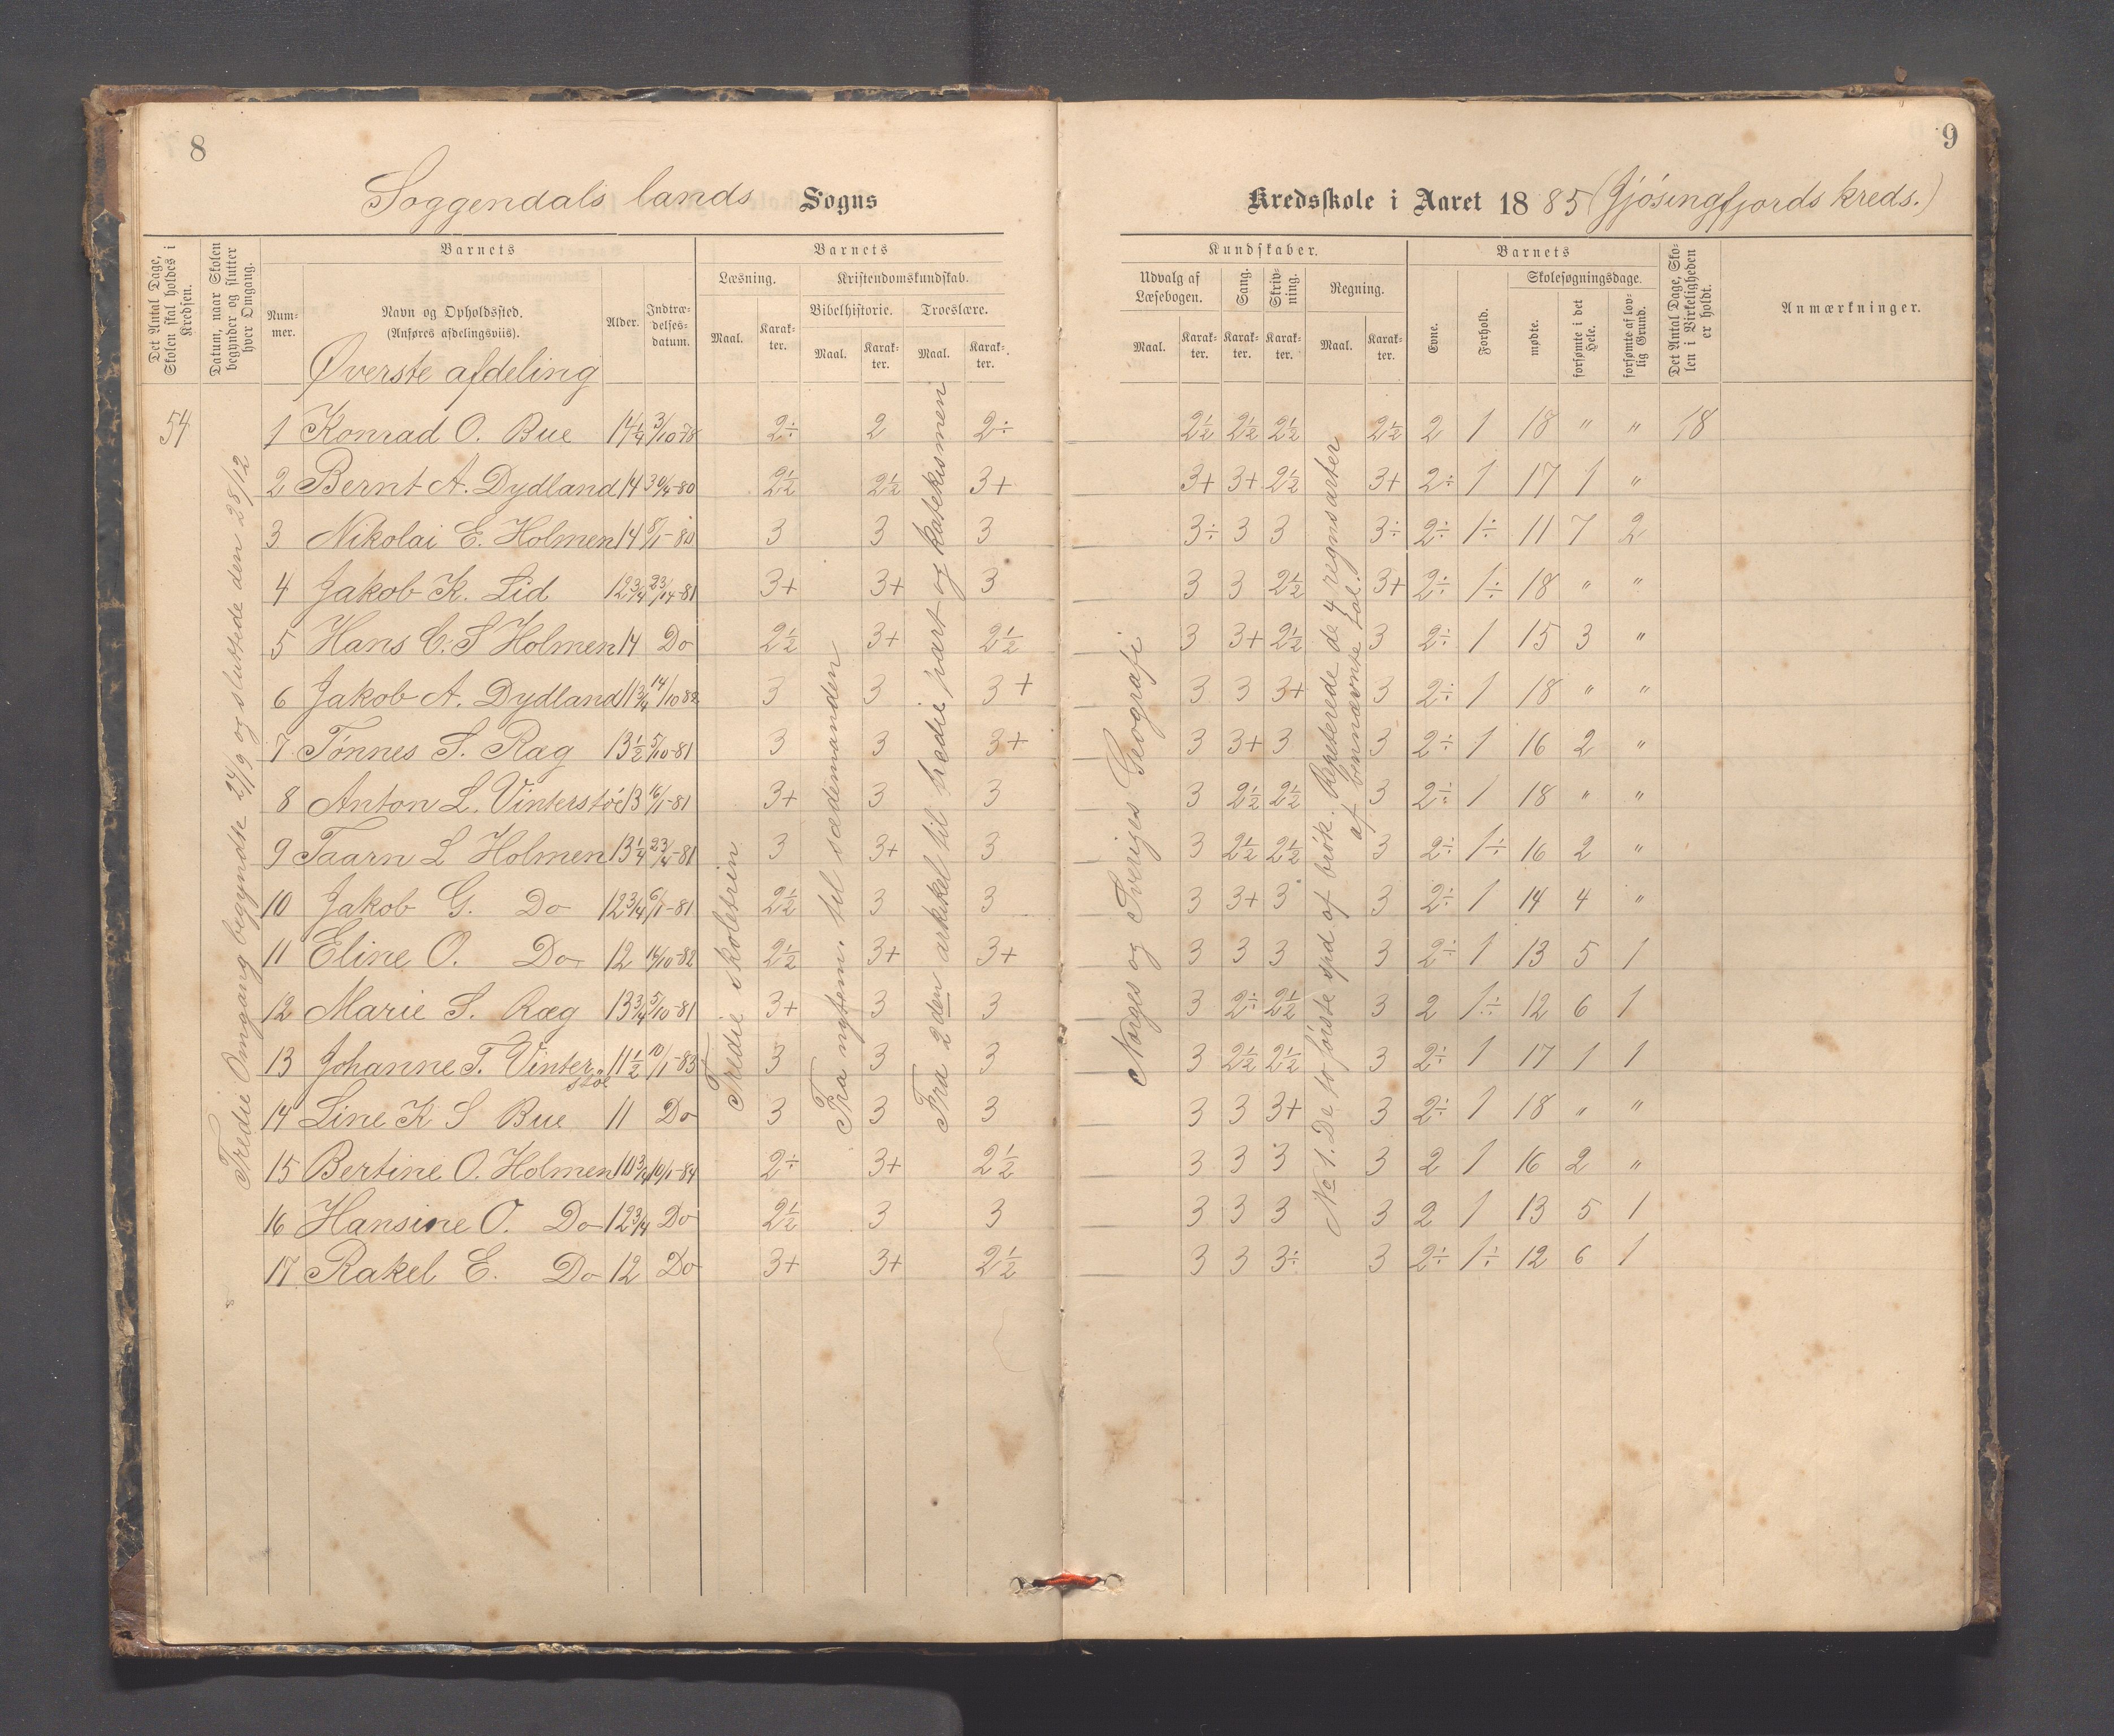 8
Soggendals lands Sogns
Det Antal Dage, Skolen skal holdes i Kredsen.
Datum, naar Skolen begynder og slutter hver Omgang.
Barnets
Nummer.
Navn og Opholdssted.
(Anføres afdelingsviis).
Alder.
Indtrædelsesdatum.
Barnets
Læsning.
Kristendomskundskab.
Bibelhistorie.
Troeslære.
Maal. Karakter. Maal. Karakter. Maal. Karakter.
Øverste afdeling
54
Tredie Omgang begyndte 24/9 og sluttede den 28/12
1 Konrad O. Bue 14 1/4 3/10-78 2÷ 2 2÷
2 Bernt A. Dydland 14 30/4-80 2½ 2½ 3+
3 Nikolai E. Holmen 14 8/1-80 3 3 3
4 Jakob K. Lid 12 3/4 23/4-81 3+ 3+ 3
5 Hans C. S Holmen 14 Do 2½ 3+ 2½
6 Jakob A. Dydland 11 3/4 14/10 82 3 3 3+
7 Tønnes S. Ræg 13½ 5/10-81 3 3 3+
8 Anton L. Vinterstøe 13 6/1-81 3+ 3 3
9 Taarn L Holmen 13 1/4 23/4-81 3 3+ 3
10 Jakob G. Do 12 3/4 6/1-81 2½ 3 3
11 Eline O. Do 12 14/10-82 2½ 3+ 3+
12 Marie S. Ræg 13 3/4 5/10-81 3+ 3 3
13 Johanne T. Vinterstøe 11½ 10/1-83 3 3 3
14 Line K S Bue 11 Do 3 3 3
15 Bertine O. Holmen 10 3/4 10/1-84 2÷ 3+ 2½
16 Hansine O. Do 12 3/4 Do 2½ 3 3
17 Rakel E. Do 12 Do 3+ 3+ 2½
Tredie skoletrin
Fra nytem. til sædemanden
Fra 2den artikel til tredie part og katekismen
9
Kredsskole i Aaret 1885 (Jjøsingfjords kreds.)
Kundskaber.
Udvalg af Læsebogen.
Sang.
Skrivning.
Regning.
Maal. Karakter. Karakter. Karakter. Maal. Karakter.
Barnets
Evne.
Forhold.
Skolesøgningsdage.
mødte.
forsømte i det Hele.
forsømte af lovlig Grund.
Det Antal Dage, Skolen i Virkeligheden er holdt.
Anmærkninger.
2½ 2½ 2½ 2½ 2 1 18 " " 18
3+ 3+ 2½ 3+ 2÷ 1 17 1 "
3÷ 3 3 3÷ 2÷ 1÷ 11 7 2
3 3 2½ 3+ 2÷ 1÷ 18 " "
3 3+ 2½ 3 2÷ 1 15 3 "
3 3 3+ 3 2÷ 1 18 " "
3 3+ 3 3 2÷ 1 16 2 "
3 2½ 2½ 3 2÷ 1 18 " "
3 2½ 2½ 3 2÷ 1÷ 16 2 "
3 3+ 3 3 2÷ 1 14 4 "
3 3 3 3 2÷ 1 13 5 1
3 2÷ 2½ 3 2 1÷ 12 6 1
3 2½ 2½ 3 2÷ 1 17 1 1
3 3 3+ 3 2÷ 1 18 " "
3 3 3 3 2 1 16 2 "
3 3 3 3 2 1 13 5 1
3 3 3÷ 3 2÷ 1÷ 12 6 1
Norges og Sveriges Geografi
No 1. De to første spd. af brøk. Repeterede de 4 regnsarter
af bennævnte tal.